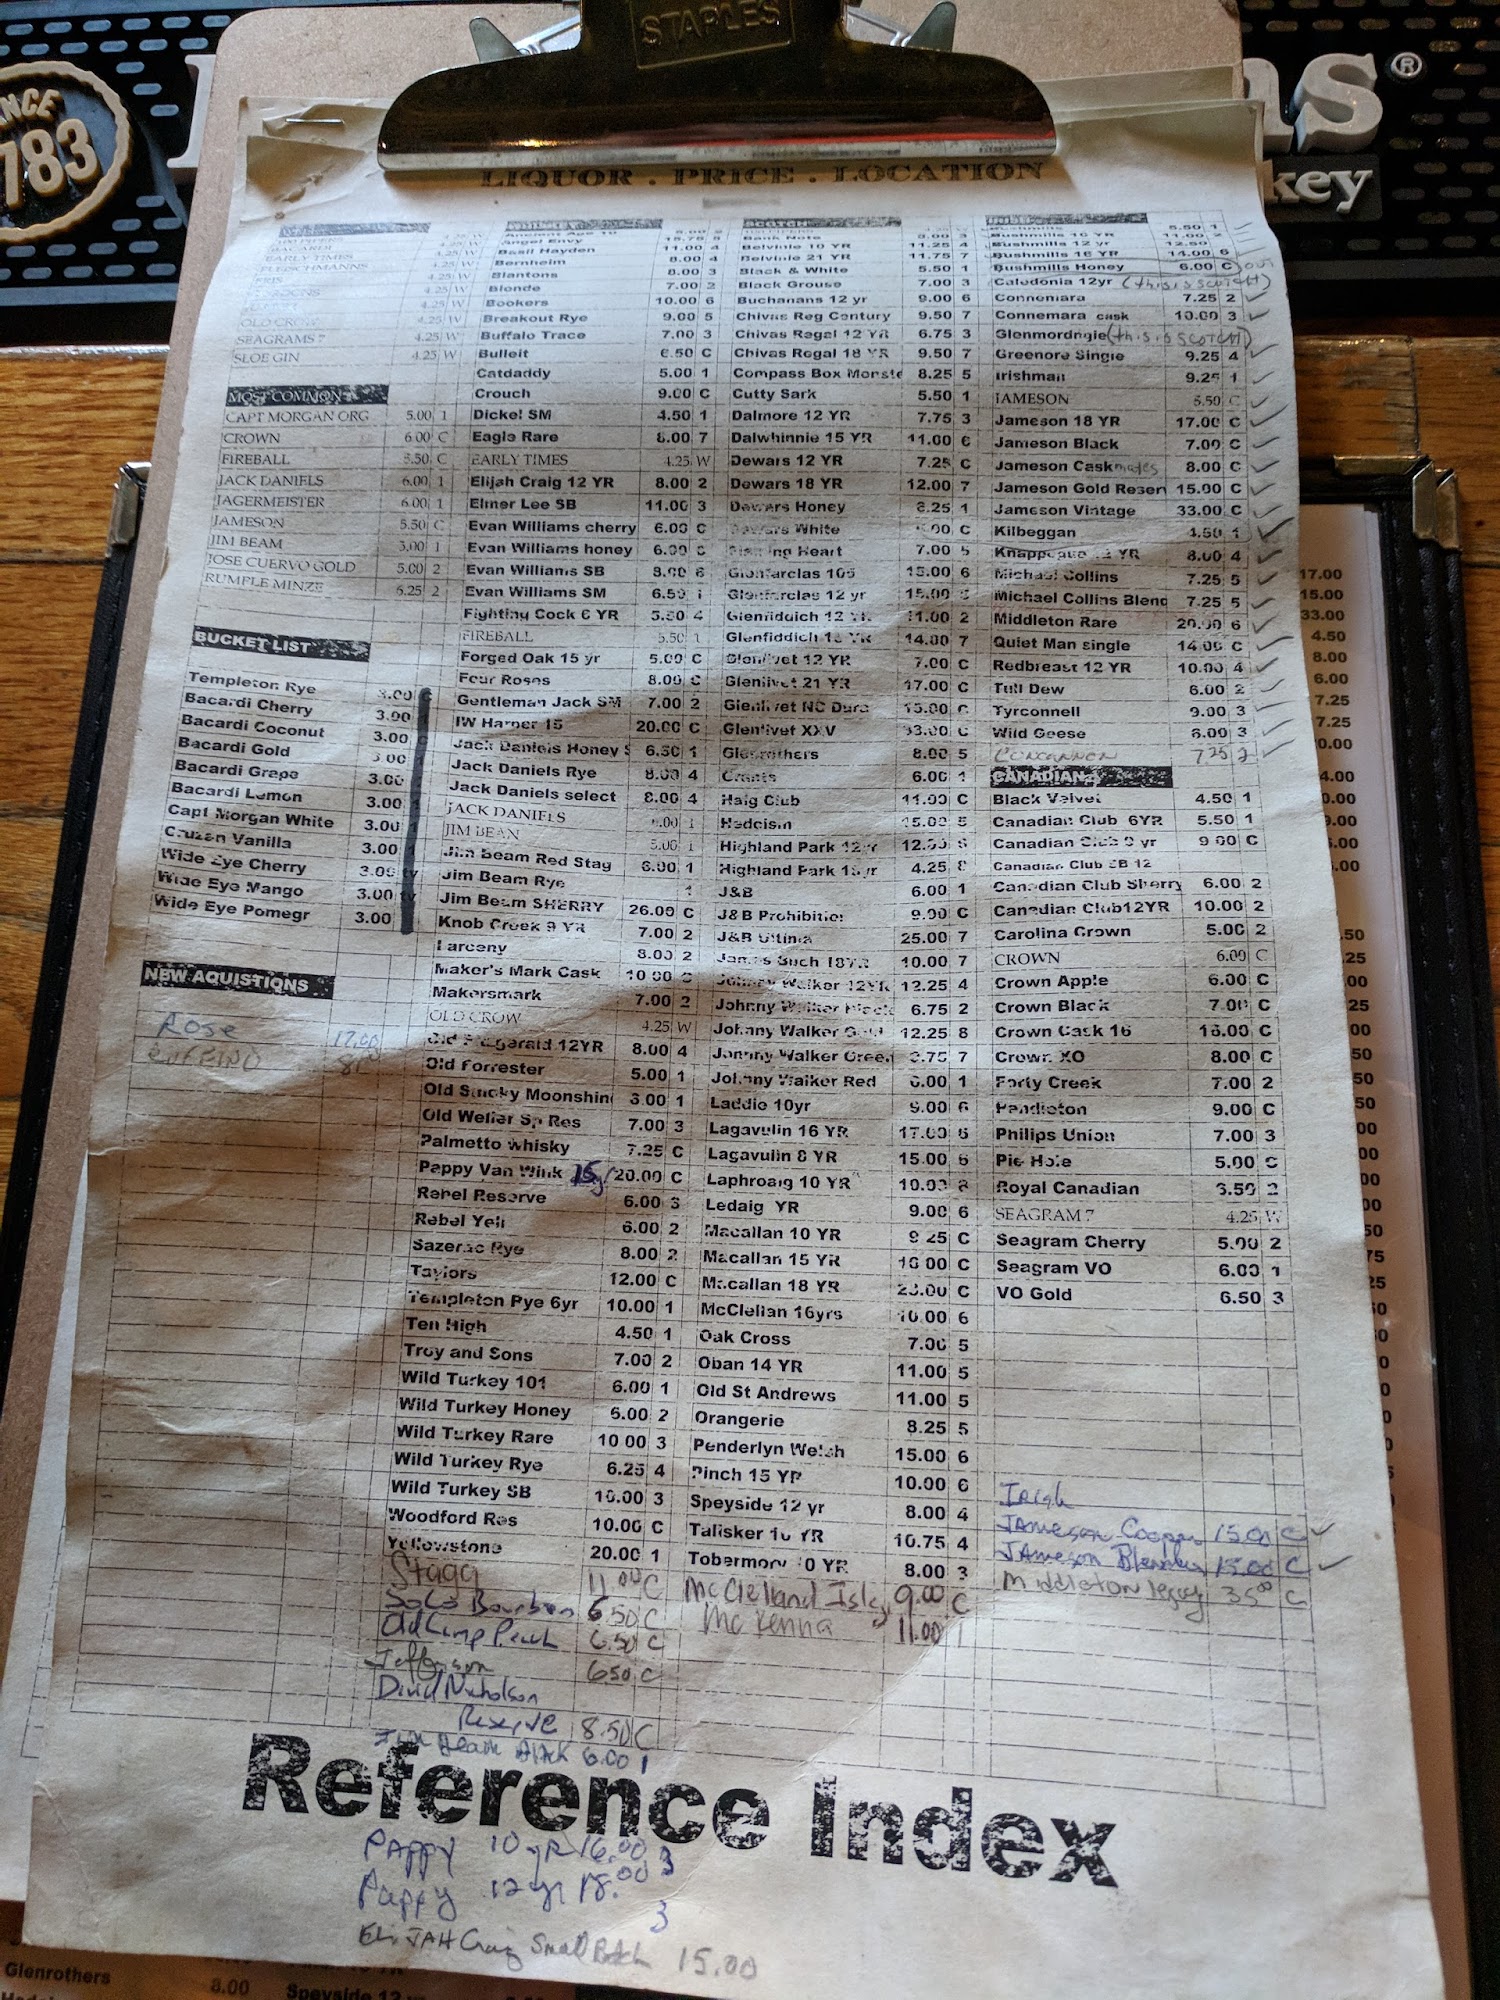 STAPLES
LIQUOR . PRICE . LOCATION
783
ns®
key
EARLY TIMES 4.25 W
FLEISCHMANNS 4.25 W
OLD CROW 4.25 W
SEAGRAMS 7 4.25 W
SLOE GIN 4.25 W
MOST COMMON
CAPT MORGAN ORG 5.00 1
CROWN 6.00 C
FIREBALL 5.50 C
JACK DANIELS 6.00 1
JAGERMEISTER 6.00 1
JAMESON 5.50 C
JIM BEAM 5.00 1
JOSE CUERVO GOLD 5.00 2
RUMPLE MINZE 6.25 2
BUCKET LIST
Templeton Rye 3.00
Bacardi Cherry 3.00
Bacardi Coconut 3.00
Bacardi Gold 3.00
Bacardi Grape 3.00
Bacardi Lemon 3.00
Capt Morgan White 3.00
Cruzan Vanilla 3.00
Wide Eye Cherry 3.00
Wide Eye Mango 3.00
Wide Eye Pomegr 3.00
NEW AQUISTIONS
Rose 17.00
Ancient Age 10
Angel Envy 15.75 5
Basil Hayden 11.00 4
Bernheim 8.00 4
Blantons 8.00 3
Blonde 7.00 2
Bookers 10.00 6
Breakout Rye 9.00 5
Buffalo Trace 7.00 3
Bulleit 6.50 C
Catdaddy 5.00 1
Crouch 9.00 C
Dickel SM 4.50 1
Eagle Rare 8.00 7
EARLY TIMES 4.25 W
Elijah Craig 12 YR 8.00 2
Elmer Lee SB 11.00 3
Evan Williams cherry 6.00 C
Evan Williams honey 6.00 C
Evan Williams SB 8.00 6
Evan Williams SM 6.50 1
Fighting Cock 6 YR 5.50 4
FIREBALL 5.50 1
Forged Oak 15 yr 5.00 C
Four Roses 8.00 C
Gentleman Jack SM 7.00 2
IW Harper 15 20.00 C
Jack Daniels Honey S 6.50 1
Jack Daniels Rye 8.00 4
Jack Daniels select 8.00 4
JACK DANIELS 6.00 1
JIM BEAN 5.00 1
Jim Beam Red Stag 6.00 1
Jim Beam Rye 1
Jim Beam SHERRY 26.00 C
Knob Creek 9 YR 7.00 2
Larceny 8.00 2
Maker's Mark Cask 10 00
Makersmark 7.00 2
OLD CROW 4.25 W
Old Fitzgerald 12YR 8.00 4
Old Forrester 5.00 1
Old Smoky Moonshin 3.00 1
Old Weller Sp Res 7.00 3
Palmetto whisky 7.25 C
Pappy Van Wink 15yr 20.00 C
Rebel Reserve 6.00 3
Rebel Yell 6.00 2
Sazerac Rye 8.00 2
Taylors 12.00 C
Templeton Rye 6yr 10.00 1
Ten High 4.50 1
Troy and Sons 7.00 2
Wild Turkey 101 6.00 1
Wild Turkey Honey 6.00 2
Wild Turkey Rare 10 00 3
Wild Turkey Rye 6.25 4
Wild Turkey SB 10.00 3
Woodford Res 10.00 C
Yellowstone 20.00 1
Stagg 11.00 C
SoCo Bourbon 6.50 C
Old Camp Peach 6.50 C
Jefferson 650 C
David Nicholson
Reserve 8.50 C
Jim Beam Black 6.00 1
SCOTCH
Bank Note 8.00 3
Belvinie 10 YR 11.25 4
Belvinie 21 YR 11.75 7
Black & White 5.50 1
Black Grouse 7.00 3
Buchanans 12 yr 9.00 6
Chivas Reg Century 9.50 7
Chivas Regal 12 YR 6.75 3
Chivas Regal 18 YR 9.50 7
Compass Box Monste 8.25 5
Cutty Sark 5.50 1
Dalmore 12 YR 7.75 3
Dalwhinnie 15 YR 11.00 6
Dewars 12 YR 7.25 C
Dewars 18 YR 12.00 7
Dewars Honey 8.25 1
Dewars White C
Flaming Heart 7.00 5
Glenfarclas 105 15.00 6
Glenfarclas 12 yr 15.00
Glenfiddich 12 YR 11.00 2
Glenfiddich YR 14.00 7
Glenlivet 12 YR 7.00 C
Glenlivet 21 YR 17.00 C
Glenlivet NC Dura 15.00 C
Glenlivet XXV 33.00 C
Glenrothers 8.00 5
Grants 6.00 1
Haig Club 11.00 C
Hedcism 15.00 5
Highland Park 12yr 12.00
Highland Park 15yr 4.25 8
J&B 6.00 1
J&B Prohibition 9.00 C
J&B Ultima 25.00 7
James Buch 18YR 10.00 7
Johnny Walker 12YR 12.25 4
Johnny Walker Black 6.75 2
Johnny Walker Gold 12.25 8
Johnny Walker Green 9.75 7
Johnny Walker Red 6.00 1
Laddie 10yr 9.00 6
Lagavulin 16 YR 17.00 6
Lagavulin 8 YR 15.00 6
Laphroaig 10 YR 10.00 8
Ledaig YR 9.00 6
Macallan 10 YR 9 25 C
Macallan 15 YR 16 00 C
Macallan 18 YR 23.00 C
McClellan 16yrs 10.00 6
Oak Cross 7.00 5
Oban 14 YR 11.00 5
Old St Andrews 11.00 5
Orangerie 8.25 5
Penderlyn Welsh 15.00 6
Pinch 15 YR 10.00 6
Speyside 12 yr 8.00 4
Talisker 10 YR 10.75 4
Tobermory 10 YR 8.00 3
McClelland Islay 9.00 C
McKenna 11.00 1
5.50 1
Bushmills 10 YR 11.00 2
Bushmills 12 yr 12.50
Bushmills 16 YR 14.00 6
Bushmills Honey 6.00 C out
Caledonia 12yr (this is SCOTCH)
Connemara 7.25 2
Connemara cask 10.00 3
Glenmordngie (this is SCOTCH)
Greenore Single 9.25 4
Irishman 9.25 1
JAMESON 5.50 C
Jameson 18 YR 17.00 C
Jameson Black 7.00 C
Jameson Caskmates 8.00 C
Jameson Gold Reserv 15.00 C
Jameson Vintage 33.00 C
Kilbeggan 4.50 1
Knappogue 12 YR 8.00 4
Michael Collins 7.25 5
Michael Collins Blend 7.25 5
Middleton Rare 20.00 6
Quiet Man single 14.00 C
Redbreast 12 YR 10.00 4
Tull Dew 6.00 2
Tyrconnell 9.00 3
Wild Geese 6.00 3
Concannon 7.25 2
CANADIAN
Black Velvet 4.50 1
Canadian Club 6YR 5.50 1
Canadian Club 9 yr 9 00 C
Canadian Club SB 12
Canadian Club Sherry 6.00 2
Canadian Club12YR 10.00 2
Carolina Crown 5.00 2
CROWN 6.00 C
Crown Apple 6.00 C
Crown Black 7.00 C
Crown Cask 16 16.00 C
Crown XO 8.00 C
Forty Creek 7.00 2
Pendleton 9.00 C
Philips Union 7.00 3
Pie Hole 5.00 C
Royal Canadian 3.50 2
SEAGRAM 7 4.25 W
Seagram Cherry 5.00 2
Seagram VO 6.00 1
VO Gold 6.50 3
Irish
Jameson Cooper 15.00 C
Jameson Blender 15.00 C
Middleton legacy 35.00 C
Reference Index
Pappy 10 yr 16.00 3
Pappy 12 yr 18.00
3
Elijah Craig Small Batch 15.00
17.00
15.00
33.00
4.50
8.00
6.00
7.25
7.25
Glenrothers 8.00 Speyside 12